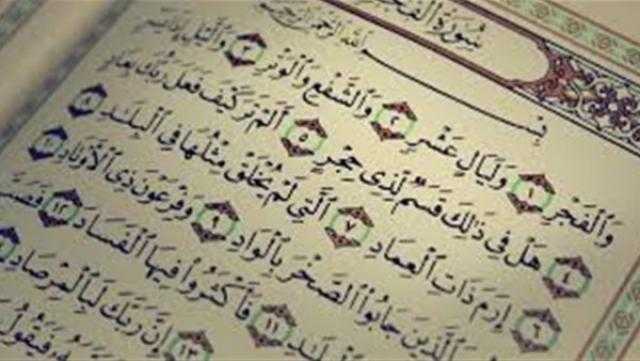 سُورَةُ الفَجْرِ
بِسْمِ اللَّهِ الرَّحْمَٰنِ الرَّحِيمِ
وَٱلْفَجْرِ ١ وَلَيَالٍ عَشْرٍ ٢ وَٱلشَّفْعِ وَٱلْوَتْرِ ٣ وَٱلَّيْلِ إِذَا يَسْرِ
٤ هَلْ فِى ذَٰلِكَ قَسَمٌ لِّذِى حِجْرٍ ٥ أَلَمْ تَرَ كَيْفَ فَعَلَ رَبُّكَ بِعَادٍ
٦ إِرَمَ ذَاتِ ٱلْعِمَادِ ٧ ٱلَّتِى لَمْ يُخْلَقْ مِثْلُهَا فِى ٱلْبِلَٰدِ ٨
ٱلَّذِينَ جَابُوا۟ ٱلصَّخْرَ بِٱلْوَادِ ٩ وَفِرْعَوْنَ ذِى ٱلْأَوْتَادِ ١٠
١١ فَأَكْثَرُوا۟ فِيهَا ٱلْفَسَادَ ١٢ فَصَبَّ
١٣ إِنَّ رَبَّكَ لَبِٱلْمِرْصَادِ
فَيَقُولُ